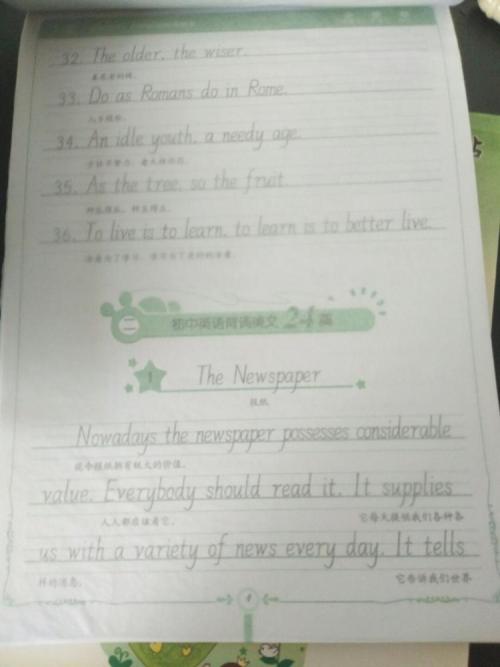 32. The older, the wiser.
33. Do as Romans do in Rome.
入乡随俗。
34. An idle youth, a needy age.
35. As the tree, so the fruit.
36. To live is to learn, to learn is to better live.
二 初中英语背诵美文 24 篇
1 The Newspaper
报纸
Nowadays the newspaper possesses considerable
现今报纸拥有极大的价值。
value. Everybody should read it. It supplies
人人都应读看它。 它每天提供我们各种各
us with a variety of news every day. It tells
样的消息。 它告诉我们世界